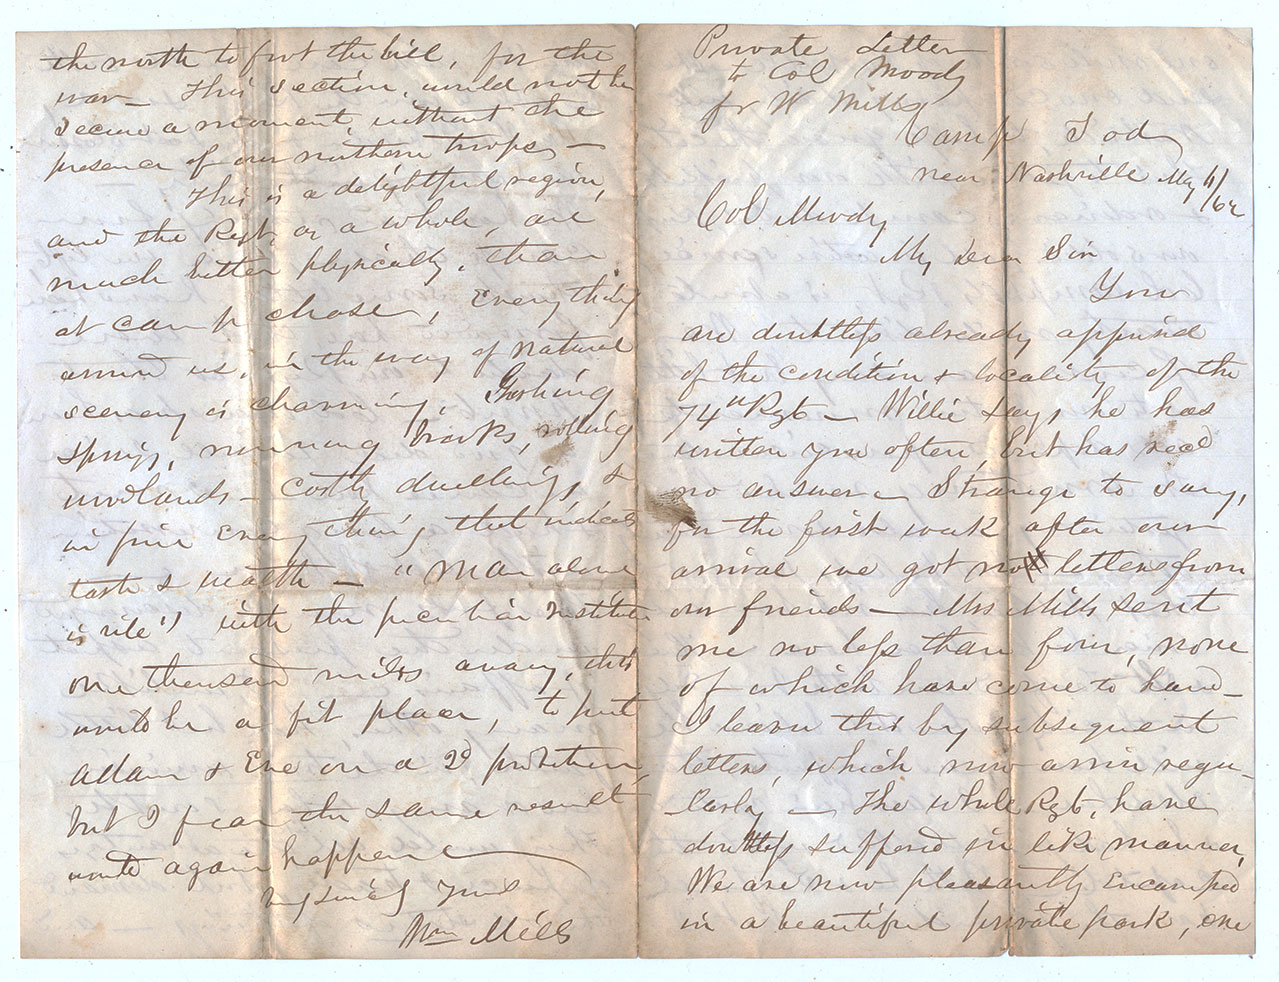 Private Letter
to Col Moody
fr W Mills
Camp Tod
near Nashville May 11/62
Col. Moody
My Dear Sir
You
are doubtless already apprised
of the condition & locality of the
74th Rgt — Willie says he has
written you often, but has recd
no answer — Strange to say,
for the first week after our
arrival we got no letters from
our friends — Mrs Mills sent
me no less than four, none
of which have come to hand —
I learn this by subsequent
letters, which now arrive regu-
larly — The whole Rgt, have
doubtless suffered in like manner,
We are now pleasantly encamped
in a beautiful private park, one
the north to foot the bill, for the
war — This section, would not be
secure a moment, without the
presence of our northern troops —
This is a delightful region,
and the Regt, as a whole, are
much better physically, than
at camp chase, Everything
around us, in the way of natural
scenery is charming, Gushing
springs, running brooks, rolling
woodlands — costly dwellings, &
in fine Every thing that indicates
taste & wealth — "Man alone
is vile" with the peculiar institution
one thousand miles away, this
would be a fit place, to put
Adam & Eve on a 2d probation,
but I fear the same result
would again happen
Very Sincely Yours
Wm Mills